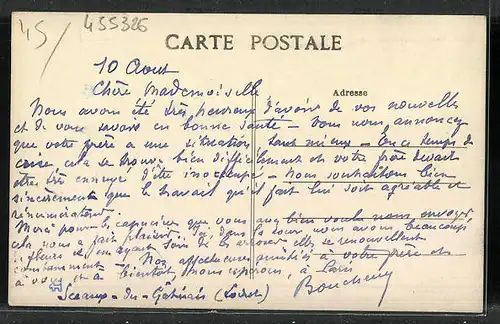 45/ 455326
CARTE POSTALE
10 Aout
Adresse
Chère Mademoiselle
Nous avons été très heureux d'avoir de vos nouvelles
et de vous savoir en bonne santé – Vous nous annoncez
que votre père a une situation tant mieux – En ce temps de
crise cela se trouve bien difficilement et votre père devait
être très ennuyé d'être inoccupé – Nous souhaitons bien
sincèrement que le travail qu'il fait lui soit agréable et
rémunérateur.
Merci pour les que vous avez bien voulu nous envoyer
cela nous a fait plaisir. Ici dans la cour, nous avons beaucoup
de fleurs et en ayant soin de les arroser elles se renouvellent
constamment – Nos affectueuses amitiés à votre père et
à vous et à bientôt nous espérons, à Paris
Sceaux-du-Gâtinais (Loiret) Boucheny